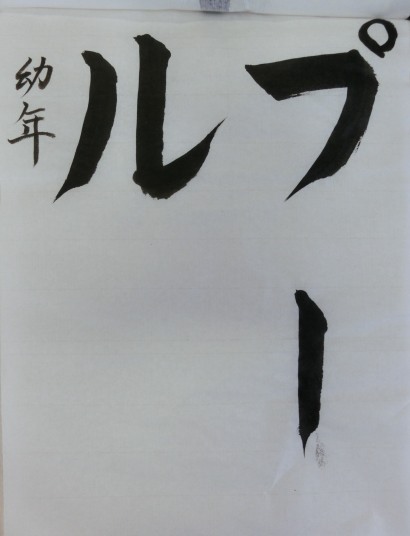 プー
ル
幼年